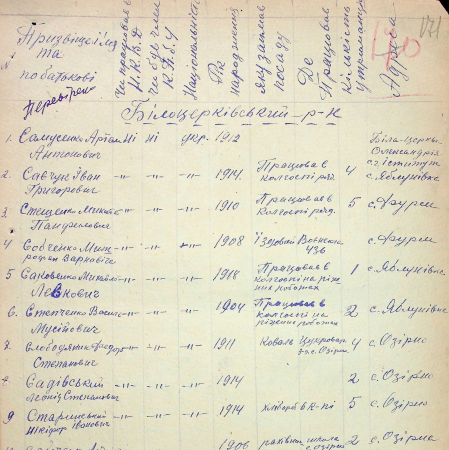 Призвіще і мя та по батькові
Чи працював в Н.К.В.Д
чи був член К.П.б.У
Національність
Рік народження
яку займав посаду
Де працював
Кількість утриманців
Адреса
171
Білоцерківський р-н
1. Самусенко Артем Антонович ні ні укр. 1912 Біла-Церква Олександрія с.г. істітут
2. Савчук Іван Григорович -"- -"- -"- 1914. Працював в колгоспі ряд. 4 с. Яблунівка
3. Стеценко Микита Панфилович -"- -"- -"- 1910 Працював в колгоспі ряд. 5 с. Фурси
4 Собченко -"- -"- -"- 1908 Їздовий 436 с. Фурси
5 Саковенко Михайло Левкович -"- -"- -"- 1918 Працював в колгоспі на різних роботах 1 с. Яблунівка
6. Степченко Василь Мусійович -"- -"- -"- 1904 Працював в колгоспі на різних роботах 2 с. Яблунівка
7 Слободяник Федор Степанович -"- -"- -"- 1911 Коваль с. Озірно 4 с. Озірно
8 Садівський Леонід Степанович -"- -"- -"- 1914 2 с. Озірно
9 Старинський Нікіфор Іванович -"- -"- -"- 1914 Хлібороб к-пі 5 с. Озірно
1906 школа с. Озірно 2 с. Озірно